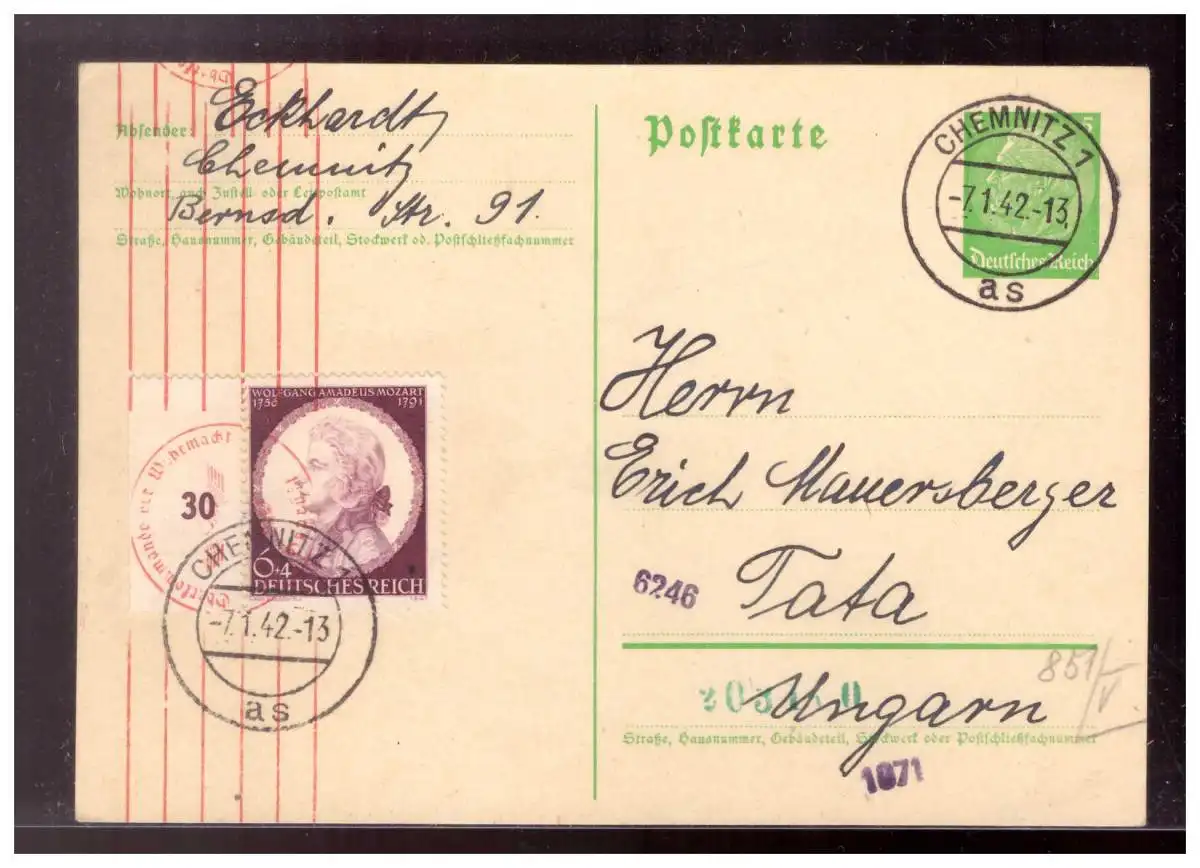 Absender: Eckhardt
Chemnitz
Wohnort, auch Zustell- oder Leitpostamt
Bernsd. Str. 91.
Straße, Hausnummer, Gebäudeteil, Stockwerk od. Postschließfachnummer
Postkarte
CHEMNITZ 1
-7.1.42.-13
as
5
Deutsches Reich
Herrn
Erich Mauersberger
Tata
6246
Ungarn
851/V
Straße, Hausnummer, Gebäudeteil, Stockwerk oder Postschließfachnummer
1071
WOLFGANG AMADEUS MOZART
1756 1791
6+4
DEUTSCHES REICH
30
Oberkommando der Wehrmacht
CHEMNITZ 1
-7.1.42.-13
as